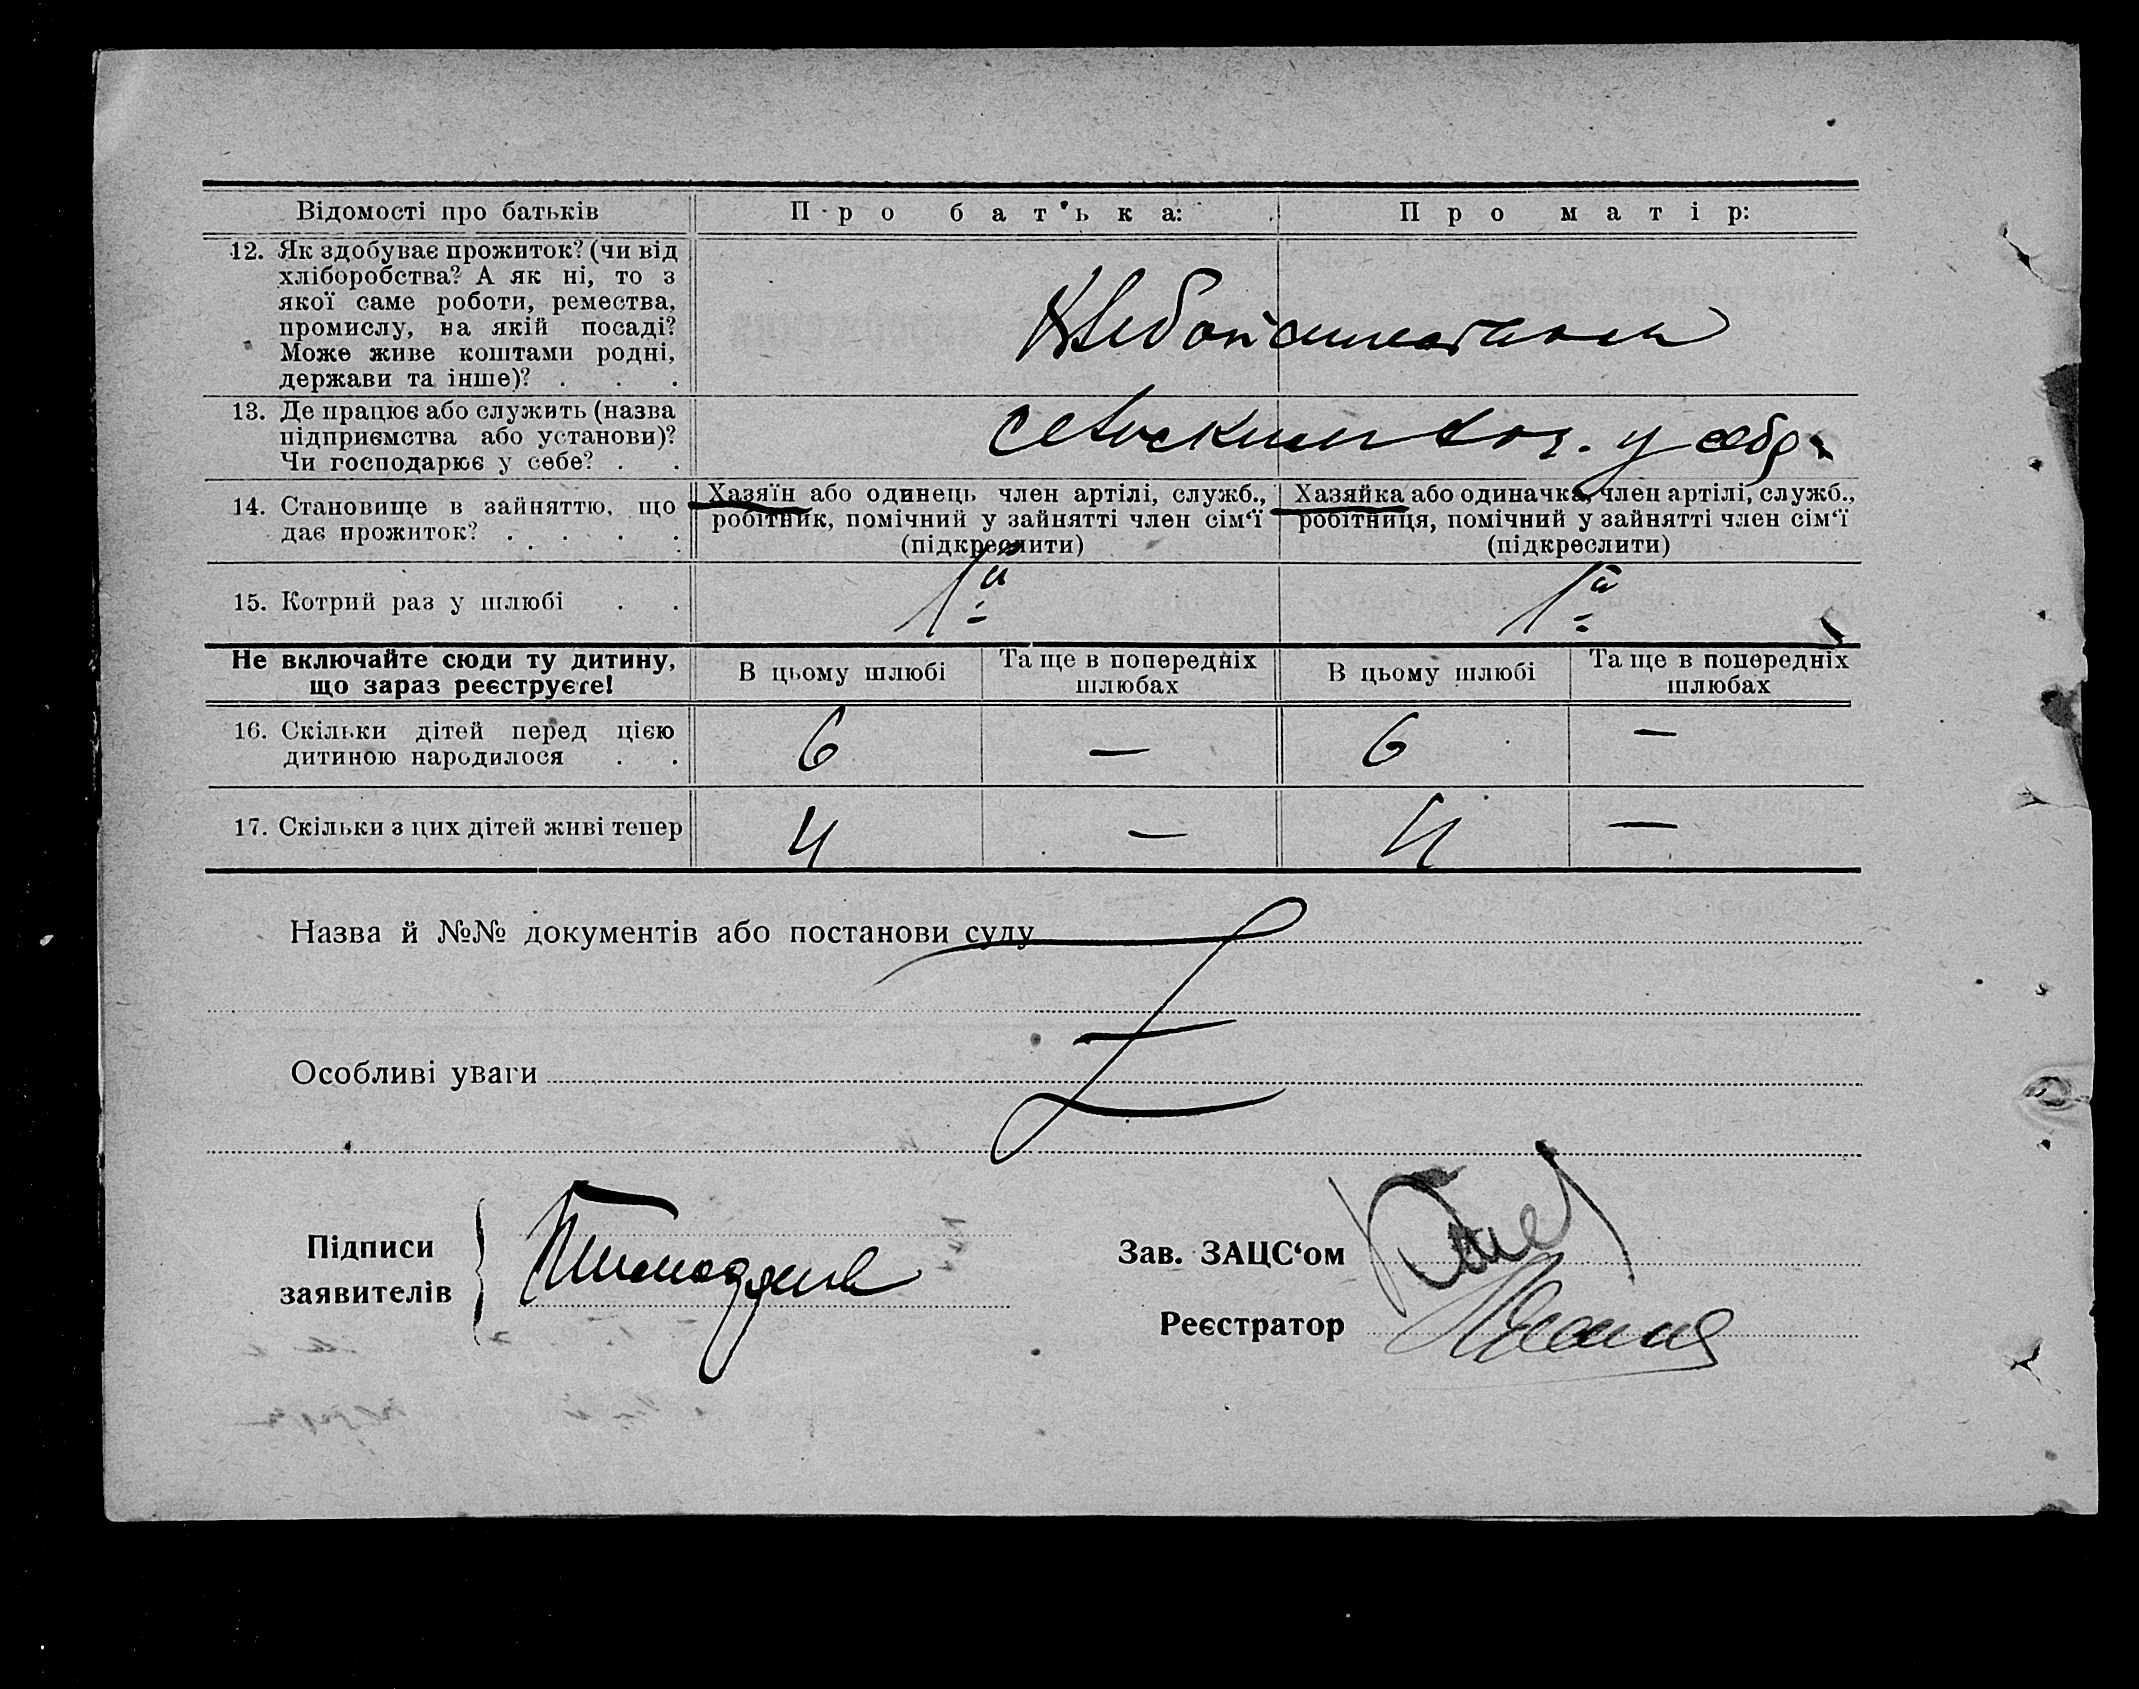 Відомості про батьків
Про батька:
Про матір:
12. Як здобуває прожиток? (чи від
хліборобства? А як ні, то з
якої саме роботи, ремества,
промислу, на якій посаді?
Може живе коштами родні,
держави та інше)? . . .
Хлебопашеством
13. Де працює або служить (назва
підприємства або установи)?
Чи господарює у себе? . .
сельским хоз. у себя
14. Становище в зайняттю, що
дає прожиток? . . . .
Хазяїн або одинець член артілі, служб.,
робітник, помічний у зайнятті член сім‘ї
(підкреслити)
Хазяйка або одиначка, член артілі, служб.,
робітниця, помічний у зайнятті член сім‘ї
(підкреслити)
15. Котрий раз у шлюбі . .
1й
1й
Не включайте сюди ту дитину,
що зараз реєструєте!
В цьому шлюбі
Та ще в попередніх
шлюбах
В цьому шлюбі
Та ще в попередніх
шлюбах
16. Скільки дітей перед цією
дитиною народилося . .
6 — 6 —
17. Скільки з цих дітей живі тепер
4 — 4 —
Назва й №№ документів або постанови суду
Особливі уваги
Підписи
заявителів
Зав. ЗАЦС‘ом
Реєстратор